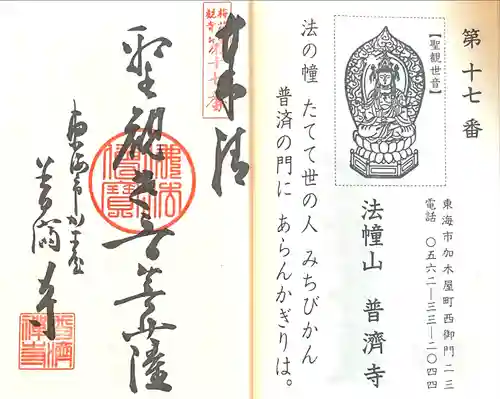 第十七番
【聖観世音】
東海市加木屋町西御門二三
電話 〇五六二―三三―二〇四四
法幢山 普濟寺
法の幢 たてて世の人 みちびかん
普済の門に あらんかぎりは。
奉拝
聖観世音菩薩
東海市加木屋
普済寺
佛法僧寶